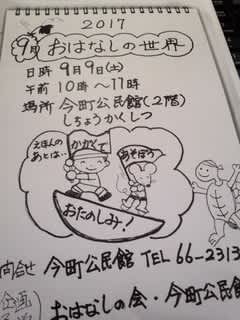 2017
9月 おはなしの世界
日時 9月9日(土)
午前10時〜11時
場所 今町公民館(2階)
しちょうかくしつ
えほんの
あとは…
かがくで
あそぼう
おたのしみ!
問合せ 今町公民館 TEL 66-2313
企画
おはなしの会・今町公民館